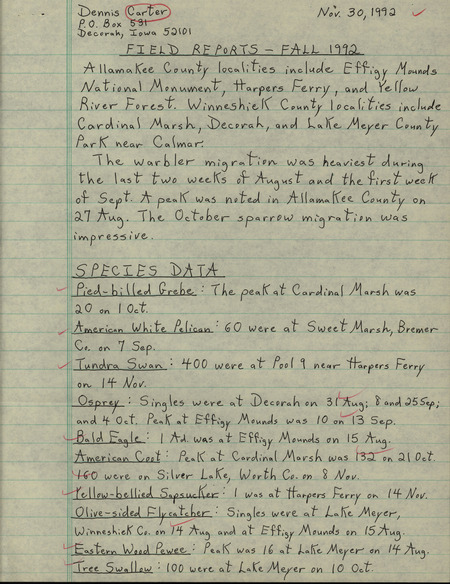 Dennis Carter Nov. 30, 1992
P.O. Box 531
Decorah, Iowa 52101
FIELD REPORTS - FALL 1992
Allamakee County localities include Effigy Mounds
National Monument, Harpers Ferry, and Yellow
River Forest. Winneshiek County localities include
Cardinal Marsh, Decorah, and Lake Meyer County
Park near Calmar.
The warbler migration was heaviest during
the last two weeks of August and the first week
of Sept. A peak was noted in Allamakee County on
27 Aug. The October sparrow migration was
impressive.
SPECIES DATA
Pied-billed Grebe: The peak at Cardinal Marsh was
20 on 1 Oct.
American White Pelican: 60 were at Sweet Marsh, Bremer
Co. on 7 Sep.
Tundra Swan: 400 were at Pool 9 near Harpers Ferry
on 14 Nov.
Osprey: Singles were at Decorah on 31 Aug; 8 and 25 Sep;
and 4 Oct. Peak at Effigy Mounds was 10 on 13 Sep.
Bald Eagle: 1 Ad. was at Effigy Mounds on 15 Aug.
American Coot: Peak at Cardinal Marsh was 132 on 21 Oct.
160 were on Silver Lake, Worth Co. on 8 Nov.
Yellow-bellied Sapsucker: 1 was at Harpers Ferry on 14 Nov.
Olive-sided Flycatcher: Singles were at Lake Meyer,
Winneshiek Co. on 14 Aug. and at Effigy Mounds on 15 Aug.
Eastern Wood Pewee: Peak was 16 at Lake Meyer on 14 Aug.
Tree Swallow: 100 were at Lake Meyer on 10 Oct.